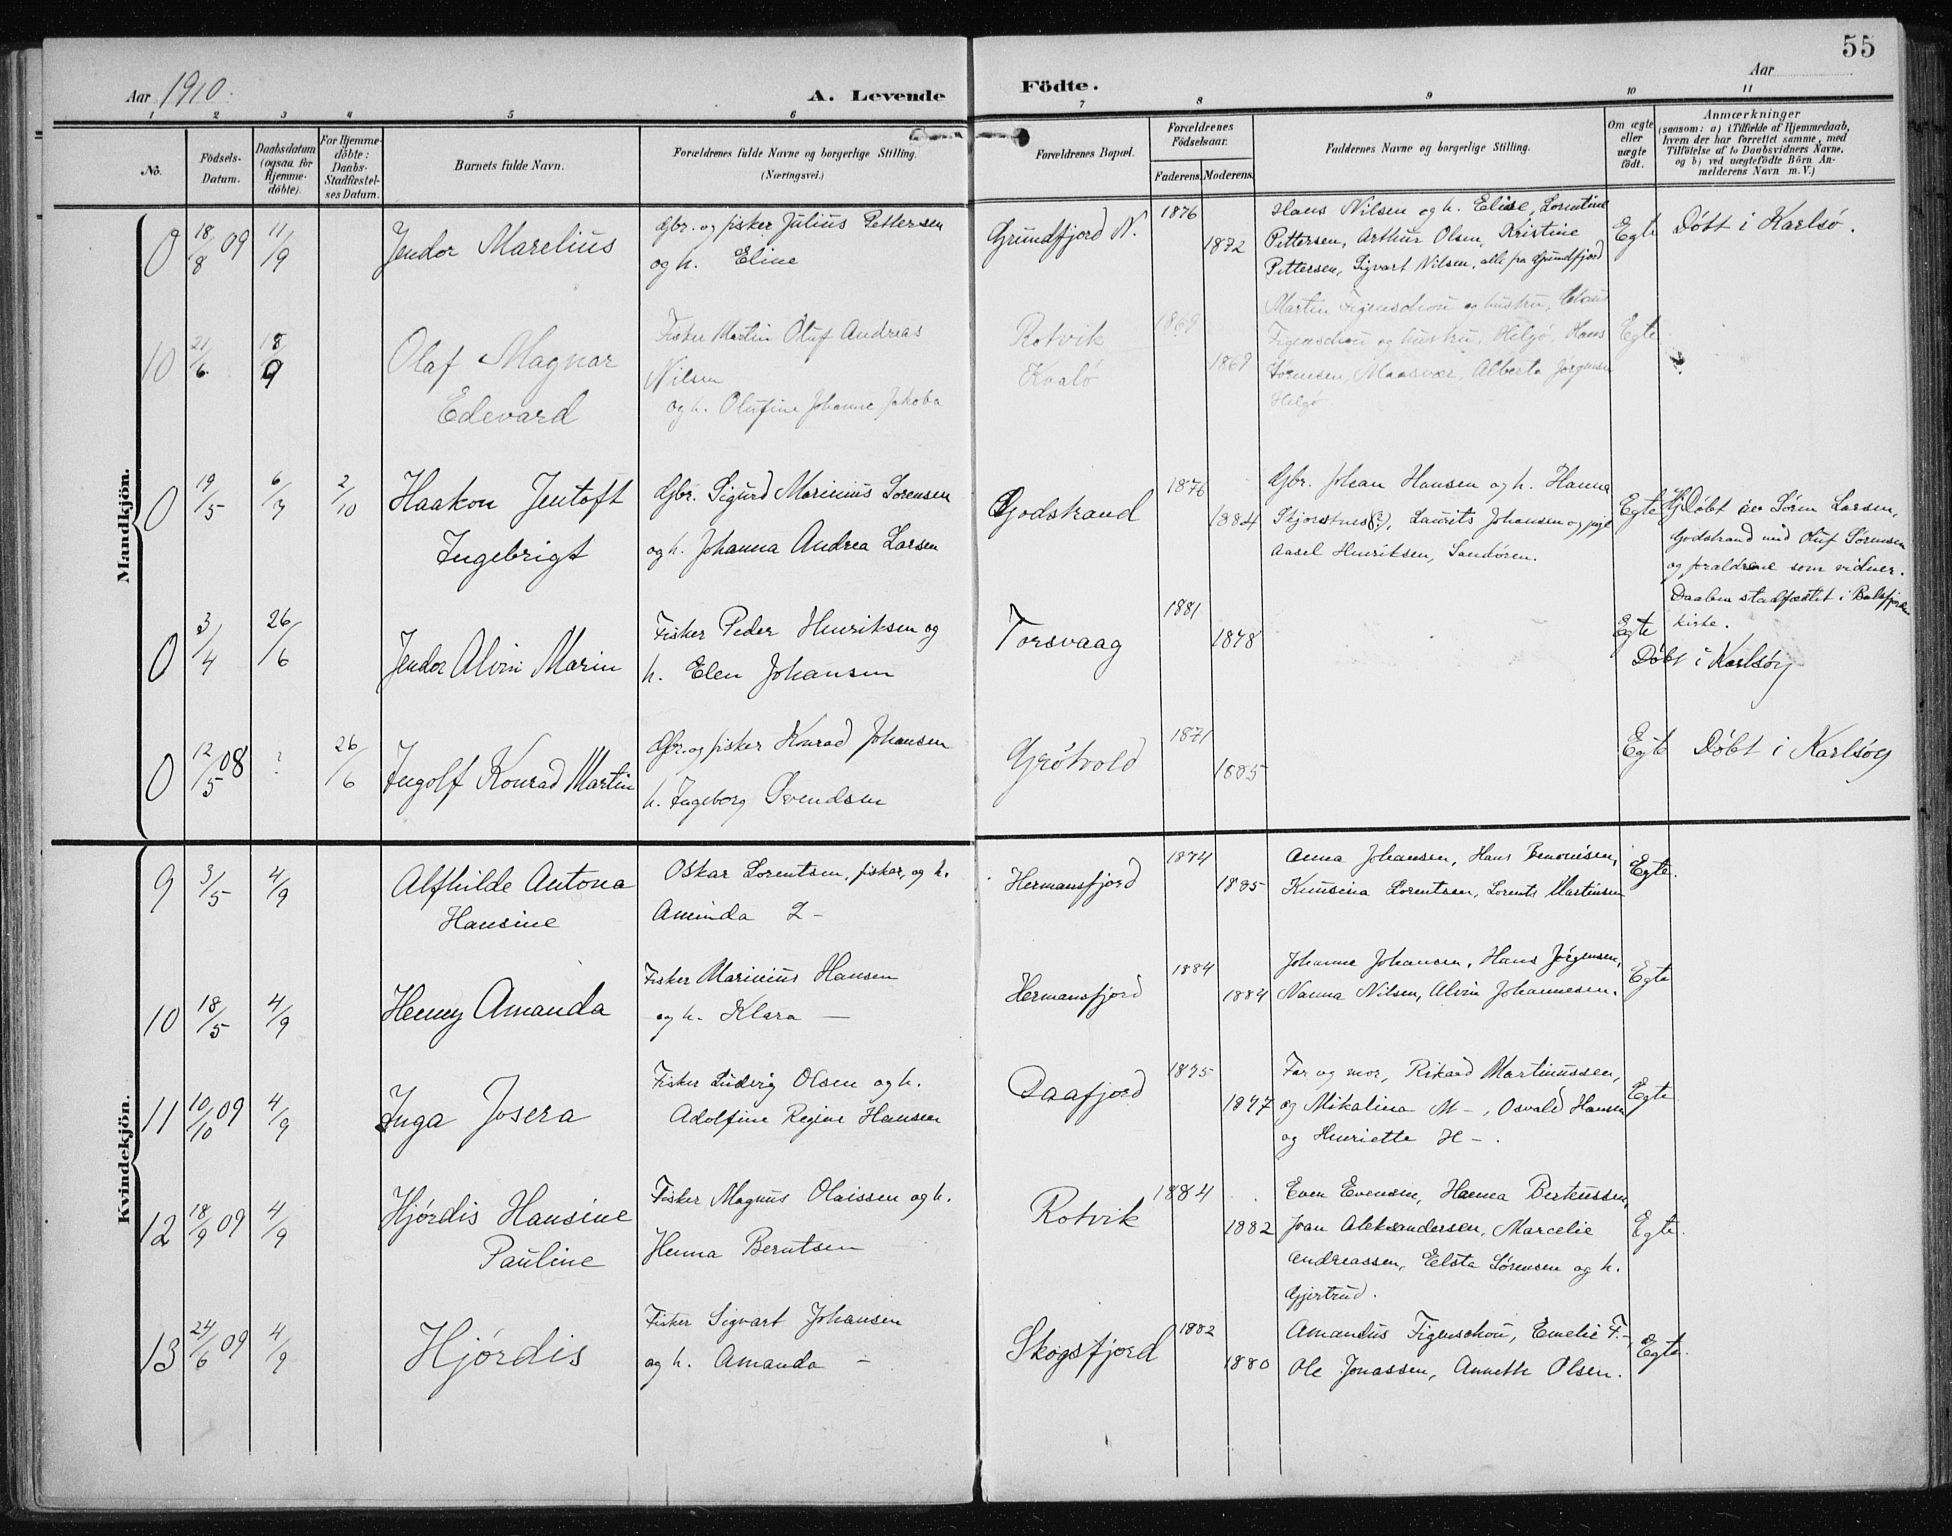 55
Aar 1910.
A. Levende
Födte.
Aar
1 2 3 4 5 6 7 8 9 10 11
No.
Födsels-
Datum.
Daabsdatum
(ogsaa for
Hjemme-
döbte).
For Hjemme-
döbte:
Daabs-
Stadfæstel-
ses Datum.
Barnets fulde Navn.
Forældrenes fulde Navne og borgerlige Stilling.
(Næringsvei.)
Forældrenes Bopæl.
Forældrenes
Födselsaar.
Faderens.
Moderens.
Faddernes Navne og borgerlige Stilling.
Om ægte
eller
uægte
født.
Anmærkninger
(saasom: a) i Tilfælde af Hjemmedaab,
hvem der har forrettet samme, med
Tilföielse af to Daabsvidners Navne,
og b) ved uægtefödte Börn An-
melderens Navn m. V.)
Mandkjön.
0 18/8 09 11/9
Jendor Marelius
Gbr. og fisker Julius Pettersen
og h. Eline
Grundfjord N.
1876
1872
Hans Nilsen og h. Elise, Lorentine
Pettersen, Arthur Olsen, Kristine
Pettersen, Sigvart Nilsen, alle fra Grundfjord
Egte
Døbt i Karlsø.
10 21/6 18/9
Olaf Magnar
Edevard
Fisker Martin Oluf Andreas
Nilsen
og h. Olufine Johanne Jakoba
Rotvik
Kvalö
1869
1869
Martin Figenschou og hustru,
Figenschou og hustru, Helgø, Hans
Sørensen, Maasvær, Alberta Jørgensen
Helgø
Egte
0 19/5 6/7 2/10
Haakon Jentoft
Ingebrigt
Gbr. Sigurd Marinius Sorensen
og h. Johanna Andrea Larsen
Godstrand
1876
1884
Gbr. Johan Hansen og h. Hanna
Skjorstnes(?), Laurits Johansen og pige
Aasel Henriksen, Sandøren.
Egte
Hj.Døbt av Søren Larsen,
Godstrand med Oluf Sørensen
og forældrene som vidner.
Daaben stadfæstet i Balsfjorden
kirke.
0 3/4 26/6
Jendor Alvin Marin
Fisker Peder Henriksen og
h. Elen Johansen
Torsvaag
1881
1878
Egte
Døbt i Karlsøy
0 12/5 08 ? 26/6
Ingolf Konrad Martin
Gbr. og fisker Konrad Johansen
h. Ingeborg Svendsen
Grøtvold
1871
1885
Egte
Døbt i Karlsøy
Kvindekjön.
9 3/5 4/9
Alfhilde Antona
Hansine
Oskar Lorentsen, fisker, og h.
Aminda L-
Hermansfjord
1874
1885
Anna Johansen, Hans Benonisen,
Knusina Lorentsen, Lorents Martinsen
Egte.
10 18/5 4/9
Henny Amanda
Fisker Marinius Hansen
og h. Klara -
Hermansfjord
1884
1884
Johanne Johansen, Hans Jörgensen,
Nanna Nilsen, Alvin Johannesen.
Egte
11 10/10 09 4/9
Inga Josera
Fisker Ludvig Olsen og h.
Adolfine Regine Hansen
Daafjord
1875
1877
Far og mor, Rikard Martinussen,
og Mikalina M-, Osvald Hansen
og Henriette H-.
Egte
12 18/9 09 4/9
Hjórdis Hansine
Pauline
Fisker Magnus Olaissen og h.
Henna Berntsen
Rotvik
1884
1882
Even Evensen, Hanna Berteussen,
Joan Aleksandersen, Marcelie
Andreassen, Elsta Sørensen og h.
Gjertrud.
Egte.
13 24/6 09 4/9
Hjórdis
Fisker Sigvart Johansen
og h. Amanda -
Skogsfjord
1882
1880
Amandus Figenschou, Emelie F-,
Ole Jonassen, Annette Olsen.
Egte.